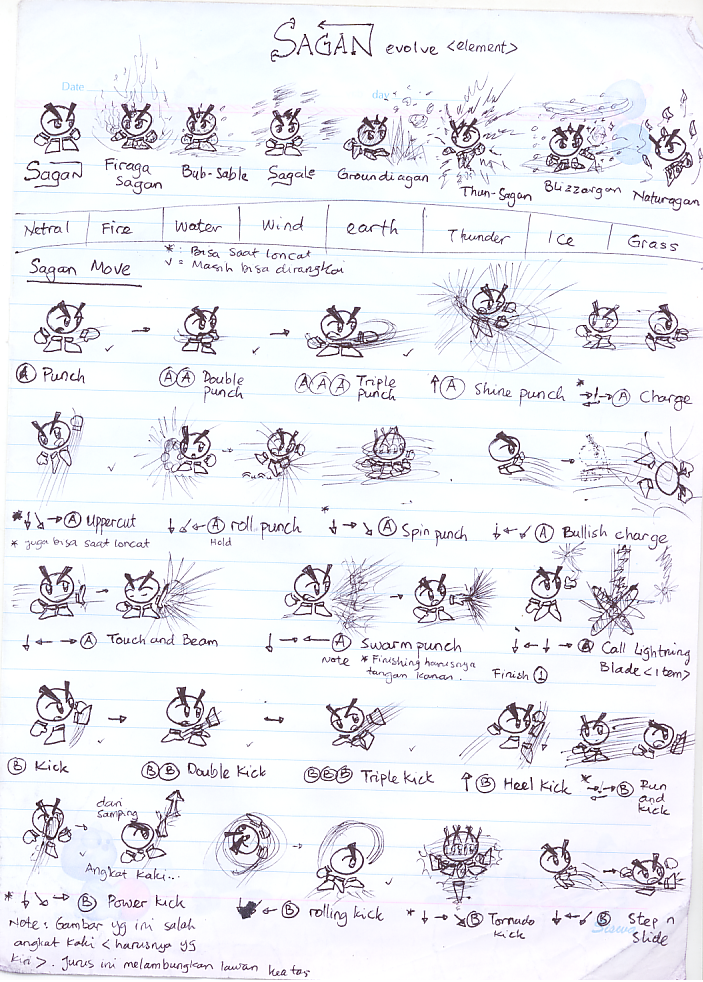 SAGAN evolve <element>
Date
day
Sagan
Firaga Sagan
Bub-Sable
Sagale
Groundiagan
Thun-Sagan
Blizzargan
Naturagan
Netral
Fire
Water
Wind
earth
Thunder
Ice
Grass
* : Bisa saat loncat
✓ = Masih bisa dirangkai
Sagan Move
Ⓐ Punch
ⒶⒶ Double
punch
ⒶⒶⒶ Triple
punch
↑Ⓐ Shine punch
Ⓐ Charge
* ↓↘→Ⓐ Uppercut
* juga bisa saat loncat
↓↙←Ⓐ roll punch
Hold
* ↓→↘Ⓐ Spin punch
↓←↙Ⓐ Bullish charge
↓←→Ⓐ Touch and Beam
↓→←Ⓐ Swarm punch
Note * Finishing harusnya
tangan kanan.
↓←↓→Ⓐ Call Lightning
Blade <1 tem>
Finish ①
Ⓑ Kick
ⒷⒷ Double Kick
ⒷⒷⒷ Triple Kick
↑Ⓑ Heel Kick
Ⓑ Run
and
Kick
dari
samping
Angkat Kaki...
* ↓↘→Ⓑ Power kick
Note : Gambar yg ini salah
angkat kaki <harusnya yg
kiri>. Jurus ini melambungkan lawan keatas
←Ⓑ rolling kick
* ↓→↘Ⓑ Tornado
Kick
↓←↙Ⓑ Step n
Slide